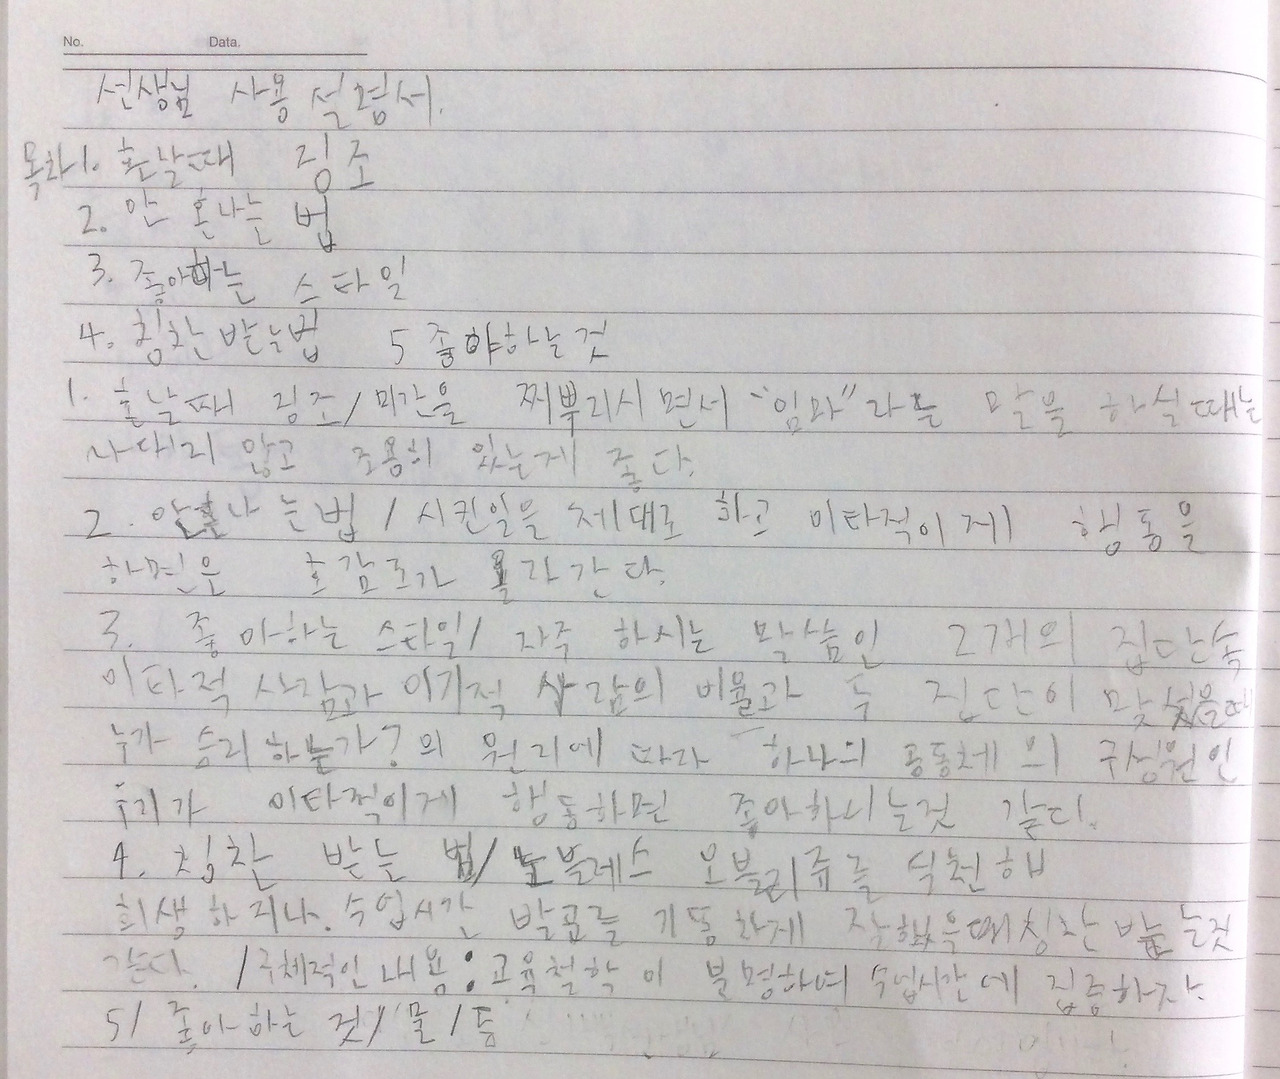 No. Data.
선생님 사용 설명서.
목차 1. 혼날때 징조
2. 안 혼나는 법
3. 좋아하는 스타일
4. 칭찬 받는법 5 좋아하는것
1. 혼날때 징조/미간을 찌뿌리시면서 "임마"라는 말을 하실때는
나대지 않고 조용히 있는게 좋다.
2. 안혼나는법 / 시킨일을 제대로 하고 이타적이게 행동을
하면은 호감도가 올라간다.
3. 좋아하는 스타일/ 자주 하시는 말씀인 2개의 집단속
이타적 사람과 이기적 사람의 비율과 두 집단이 맞 을때
누가 승리하는가? 의 원리에 따라 하나의 공동체의 구성원인
우리가 이타적이게 행동하면 좋아하시는것 같다.
4. 칭찬 받는 법/노블레스 오블리쥬를 실천해
희생하거나. 수업시간 발표를 기똥차게 잘했을때칭찬 받는것
같다. /구체적인 내용:교육철학이 분명하며 수업시간에 집중하자.
5/ 좋아하는 것/ 물/등